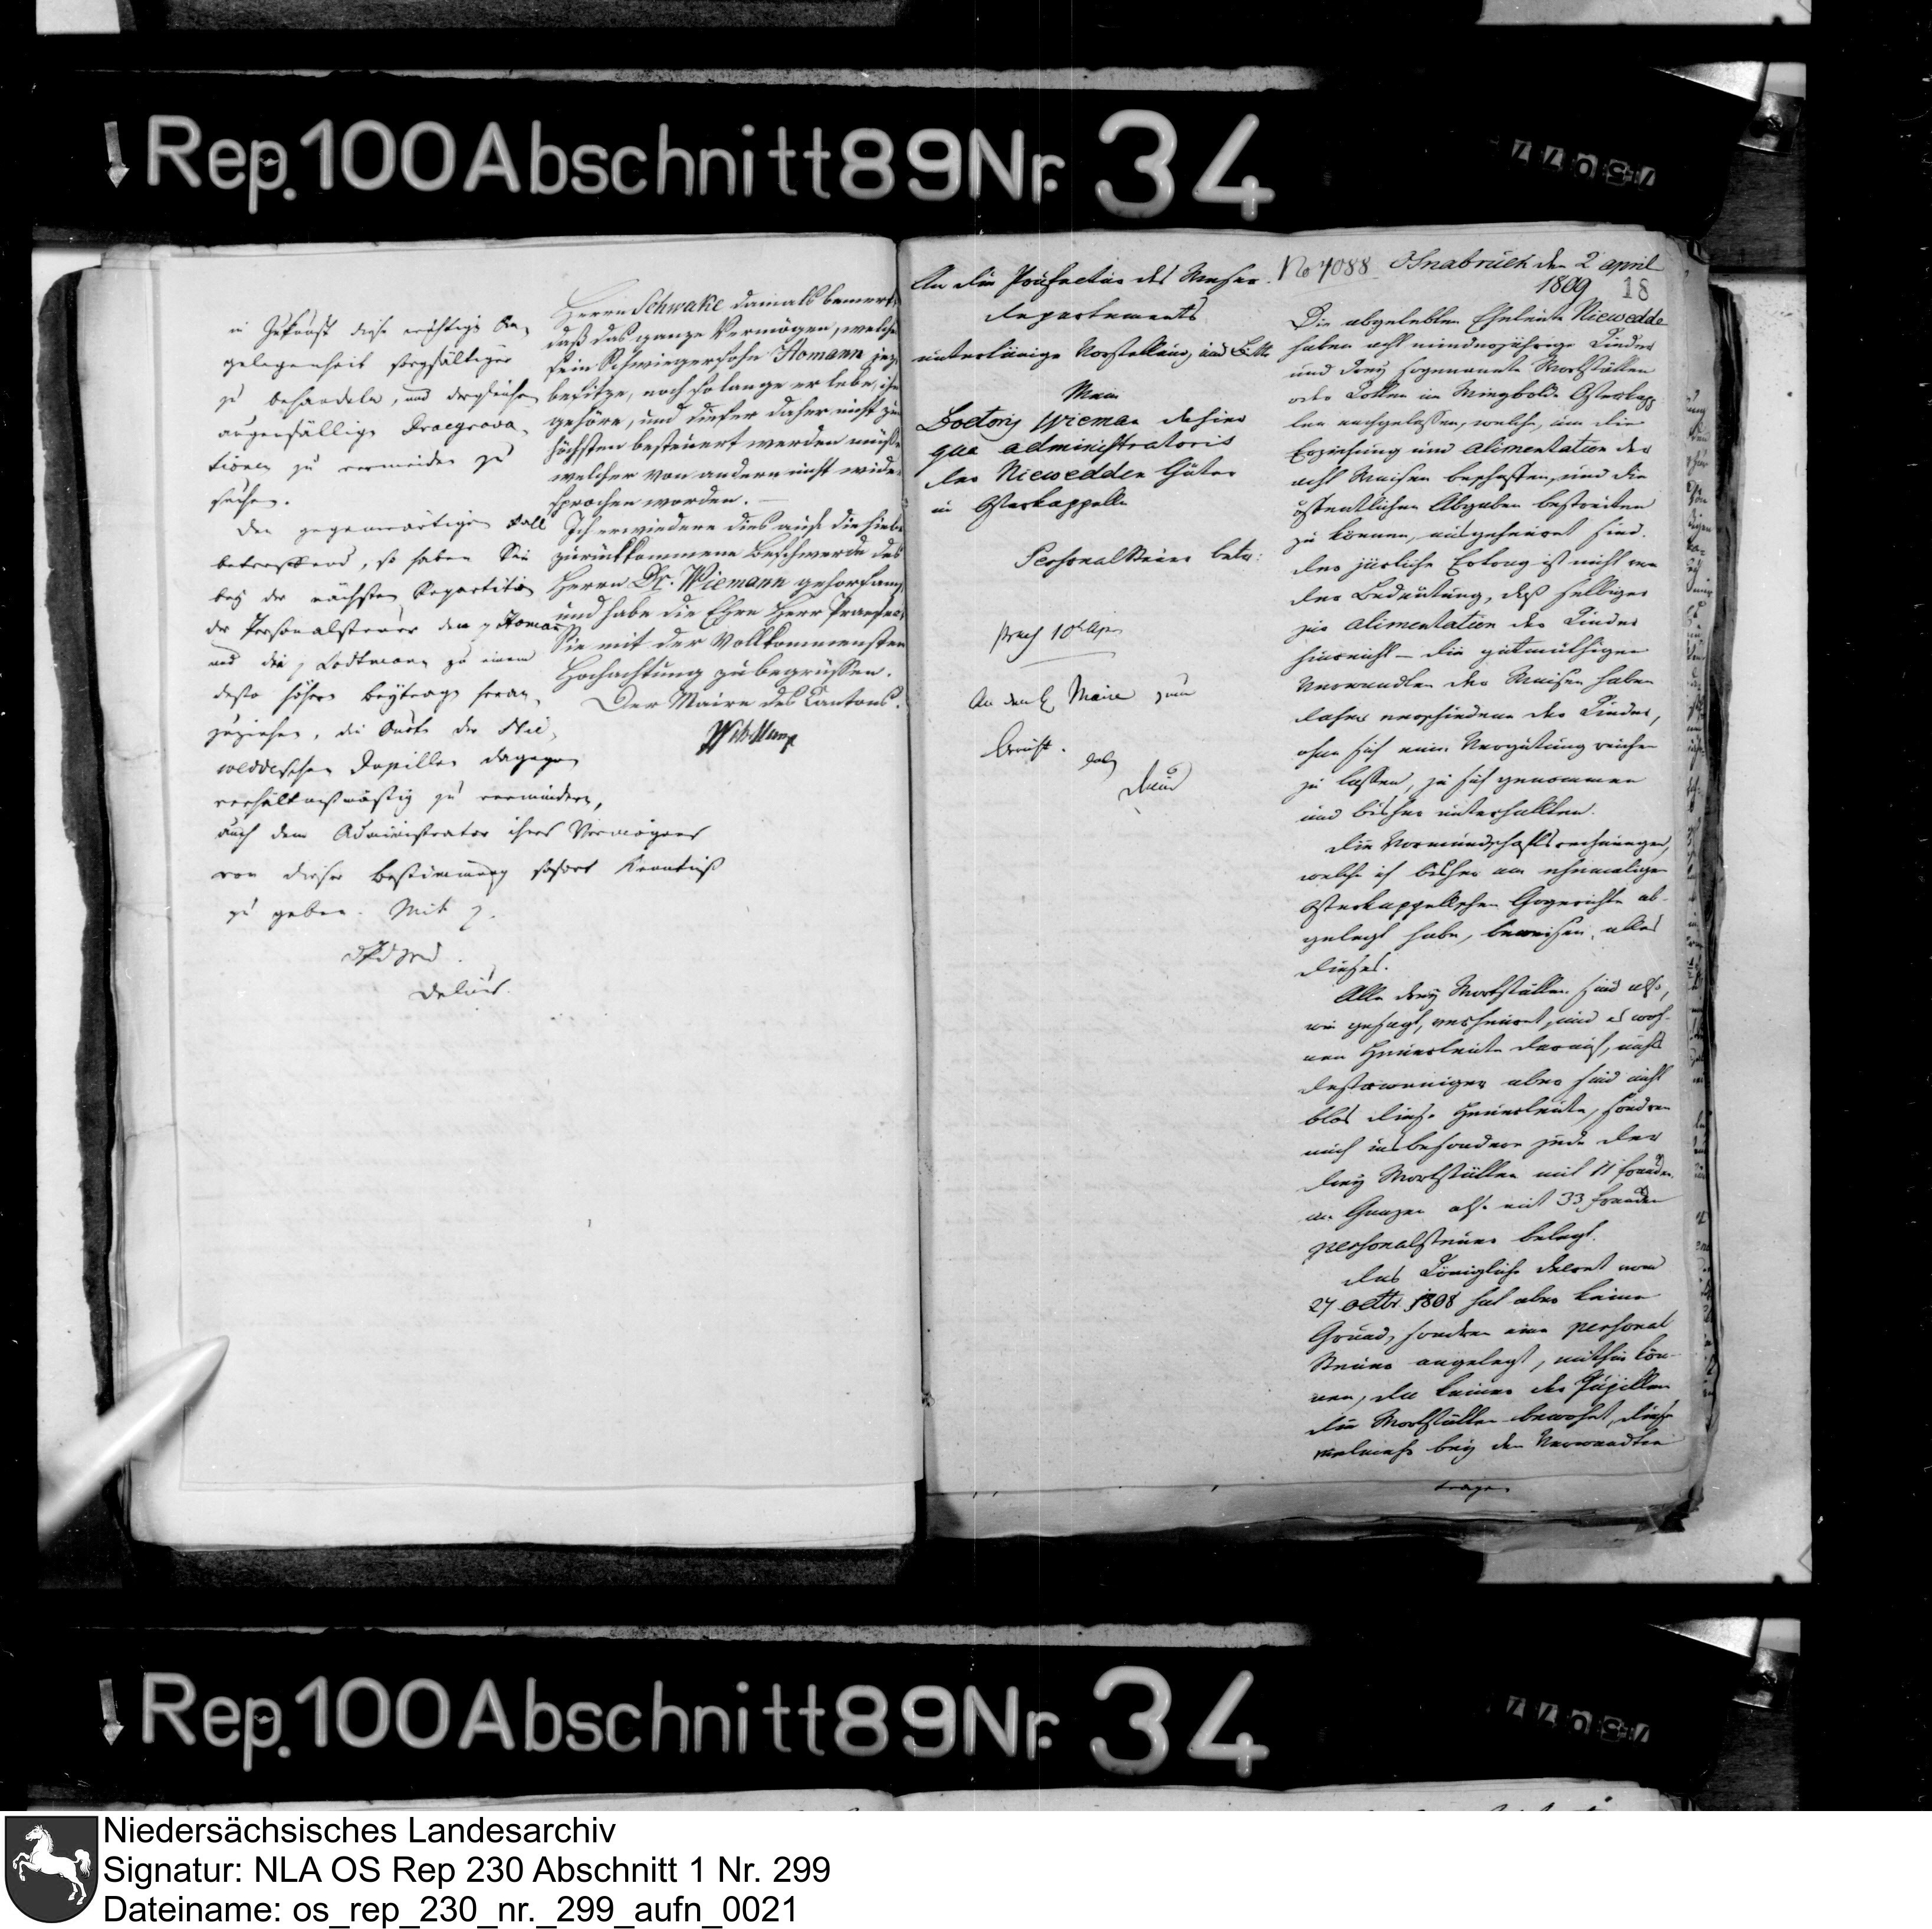 Rep. 100 Abschnitt 89 Nr. 34
in Zukunft diese wichtige An¬
gelegenheit sorgfältiger
zu behandeln, und dergleichen
augenfällige Praegrava¬
tionen zu vermeiden zu
suchen.
Den gegenwärtigen Fall
betreffend, so haben Sie
bey der nächsten Repartition
der Personalsteuer den p Homan
und die p Lodtmann zu einem
desto höhern Beytrage heran¬
zuziehen, die Quote der Nie¬
weddeschen Pupillen dagegen
verhältnißmäßig zu vermindern,
auch dem Administrator ihres Vermögens
von dieser Bestimmung sofort Kenntniß
zu geben. Mit p.
Delius.
Herrn Schwake damals bemerkt,
daß das ganze Vermögen, welches
sein Schwiegersohn Homann jez
besitze, noch so lange er lebe, ihm
gehöre, und dieser daher nicht zum
höchsten besteuert werden müsse
welcher von andern nicht wider¬
sprochen worden. —
Ich erwiedere dies auf die hiebei
zurückkommende Beschwerde des
Herrn Dr. Wiemann gehorsamst,
und habe die Ehre Herr Praefect,
Sie mit der vollkommensten
Hochachtung zu begrüssen.
Der Maire des Cantons.
An die Präfectur des Weser
departements
unterthänige Vorstellung und Bitte
Mein
Doctoris Wieman dahier
qua administratoris
der Niewedden Güter
in Osterkappeln
Personal Steuer betr:
praes 10t Apr
An den H. Maire zum
Bericht.
No 7088 Osnabrück den 2 april
1809
18
Die abgelebten Eheleute Niewedde
haben acht minderjährige Kinder
und drey sogenannte Markstätten
oder Kotten im Wiegbolde Osterkapp
len nachgelassen, welche, um die
Erziehung und alimentation der
acht Waisen beschaffen, und die
öffentlichen Abgaben bestreiten
zu können, ausgeheuret sind.
Der järliche Ertrag ist nicht von
der Bedeutung, daß selbiger
zur alimentation der Kinder
hinreicht — die gutmüthigen
Verwandten der Waisen haben
daher verschiedene der Kinder,
ohne sich eine Vergütung reichen
zu lassen, zu sich genommen
und bisher unterhalten.
Die Vormundschaftsrechnungen,
welche ich bisher am ehemaligen
Osterkappelschen Gogerichte ab¬
gelegt habe, beweisen alles
dieses.
Alle drey Markstätten sind also,
wie gesagt, verheuret, und es woh¬
nen Heuerleute darauf, nichts
destoweniger aber sind nicht
blos diese Heuerleute, sondern
auch insbesondere jede der
drey Markstätten mit 11 franken
im Ganzen also mit 33 franken
personalsteuer belegt.
Das Königliche Decret vom
27 octbr. 1808 hat aber keine
Grund, sondern eine personal
Steuer angelegt, mithin kön¬
nen, da keiner der Pupillen
die Markstätten bewohnt, diese
vielmehr bey den Verwandten
Rep. 100 Abschnitt 89 Nr. 34
Niedersächsisches Landesarchiv
Signatur: NLA OS Rep 230 Abschnitt 1 Nr. 299
Dateiname: os_rep_230_nr._299_aufn_0021